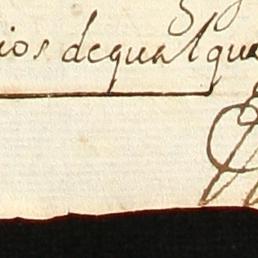 ios dequalque